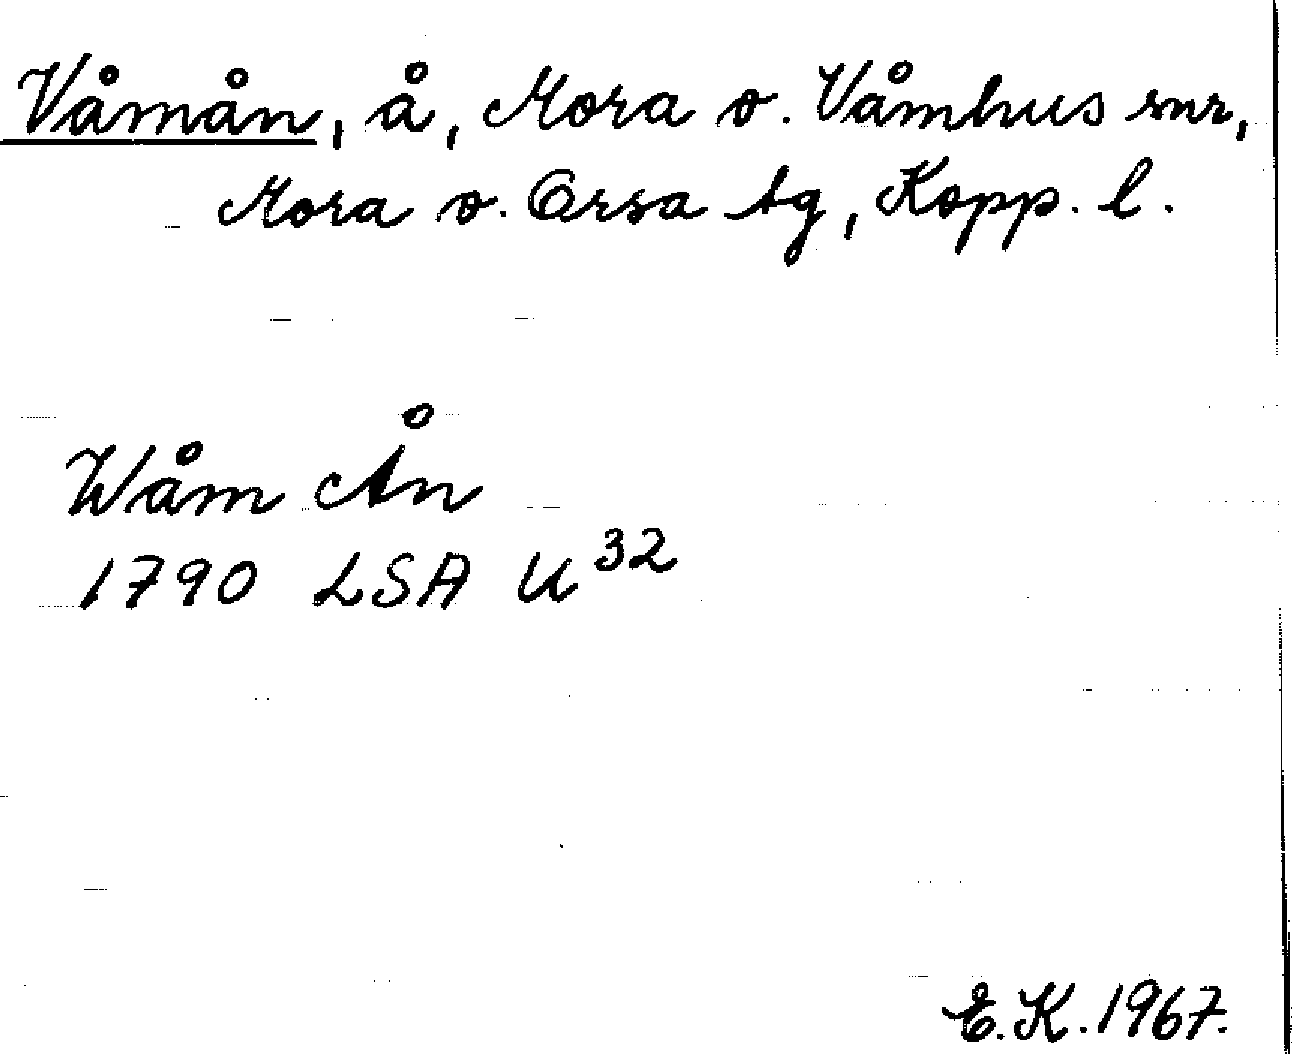 Våmån, å, Mora o. Våmhus snr,
Mora o. Orsa tg, Kopp. l.
Wåm Ån
1790 LSA U 32
E.K. 1967.